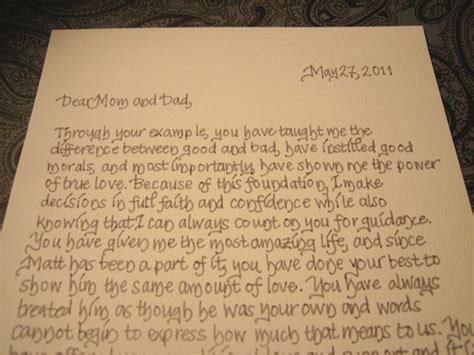 May 27, 2011
Dear Mom and Dad,
Through your example, you have taught me the
difference between good and bad, have instilled good
morals, and most importantly, have shown me the power
of true love. Because of this foundation, I make
decisions in full faith and confidence while also
knowing that I can always count on you for guidance.
You have given me the most amazing life, and since
Matt has been a part of it, you have done your best to
show him the same amount of love. You have always
treated him as though he was your own and words
cannot begin to express how much that means to us. You